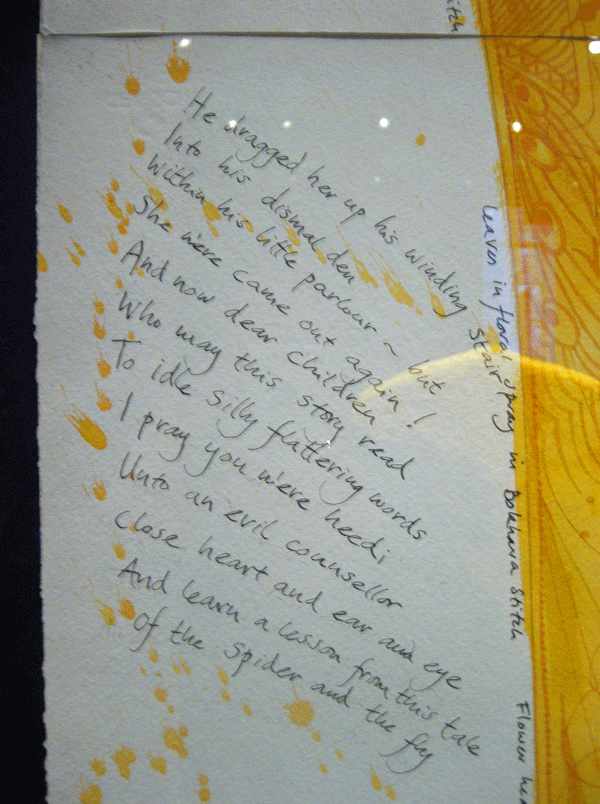 itch
He dragged her up his winding stair
Into his dismal den
Within his little parlour ~ but
She ne're came out again !
And now dear children
Who may this story read
To idle silly fluttering words
I pray you ne're heed;
Unto an evil counsellor
Close heart and ear and eye
And learn a lesson from this tale
Of the Spider and the fly
Leaves in floral spray in Bokhara Stitch
Flower he